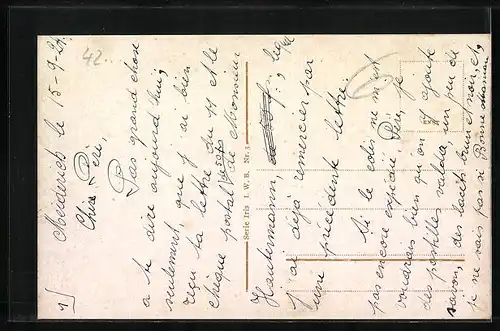 42
Meiderich le 15-9-24.
Chère Péri,
Pas grand chose
a te dire aujourd'hui,
seulement que j'ai bien
reçu ta lettre du 11 et le
chèque postal de Monsieur
Serie Iris I. W. B. Nr. 3
Hautermann,
J'ai déjà remercier par
une précédente lettre.
Si le colis ne m'est
pas encore expédié Péri, je
voudrais bien qu'on y ajoute
des pastilles valda, un peu de
savon, des laits brun et noir, et,
je ne sais pas si Bonne maman
1